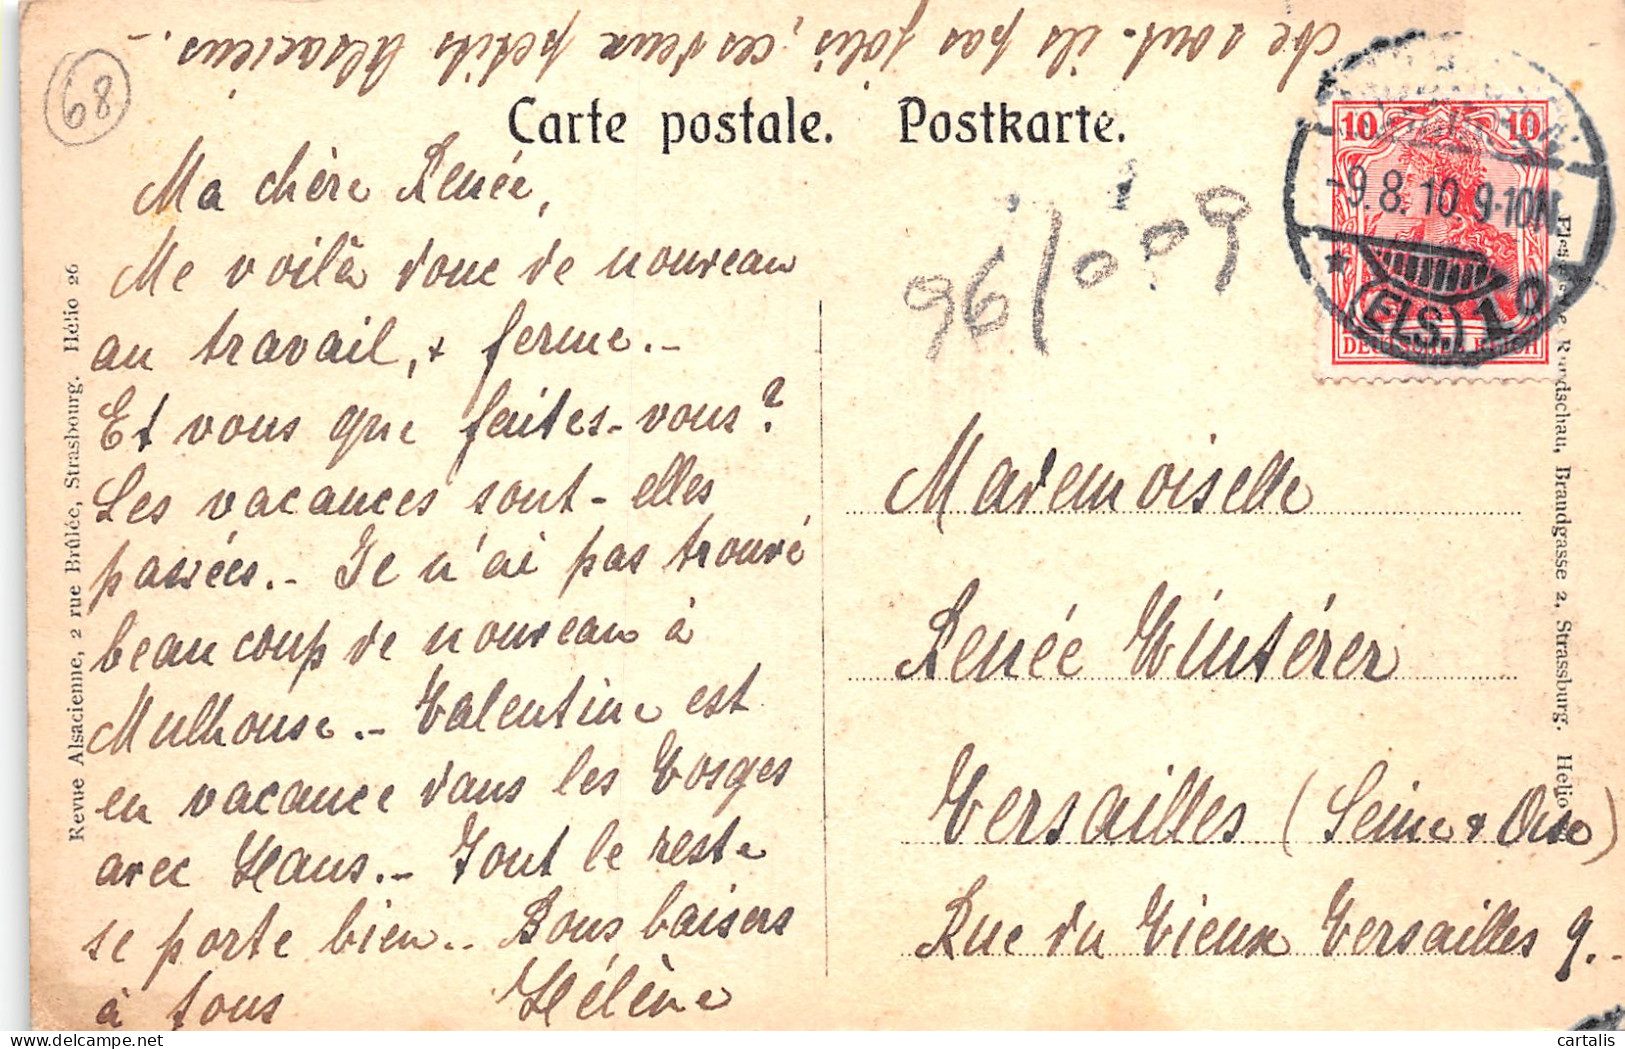 Ne sont-ils pas jolis, ces deux petits Alsaciens. –
68
Carte postale. Postkarte.
Ma chère Renée,
Me voilà donc de nouveau
au travail, + ferme. –
Et vous que faites-vous?
Les vacances sont-elles
passées. – Je n'ai pas trouvé
beaucoup de nouveau à
Mulhouse. – Valentine est
en vacance dans les Vosges
avec Hans. – Tout le reste
se porte bien. – Bons baisers
à tous Hélène
96/009
10 10
DEUTSCHES REICH
-9.8.10.9-10N.
* (ELS) 1
Mademoiselle
Renée Wintérer
Versailles (Seine & Oise)
Rue du Vieux Versailles 9. –
Revue Alsacienne, 2 rue Brûlée, Strasbourg. Hélio 26
Rundschau, Brandgasse 2, Strassburg. Helio
cartalis